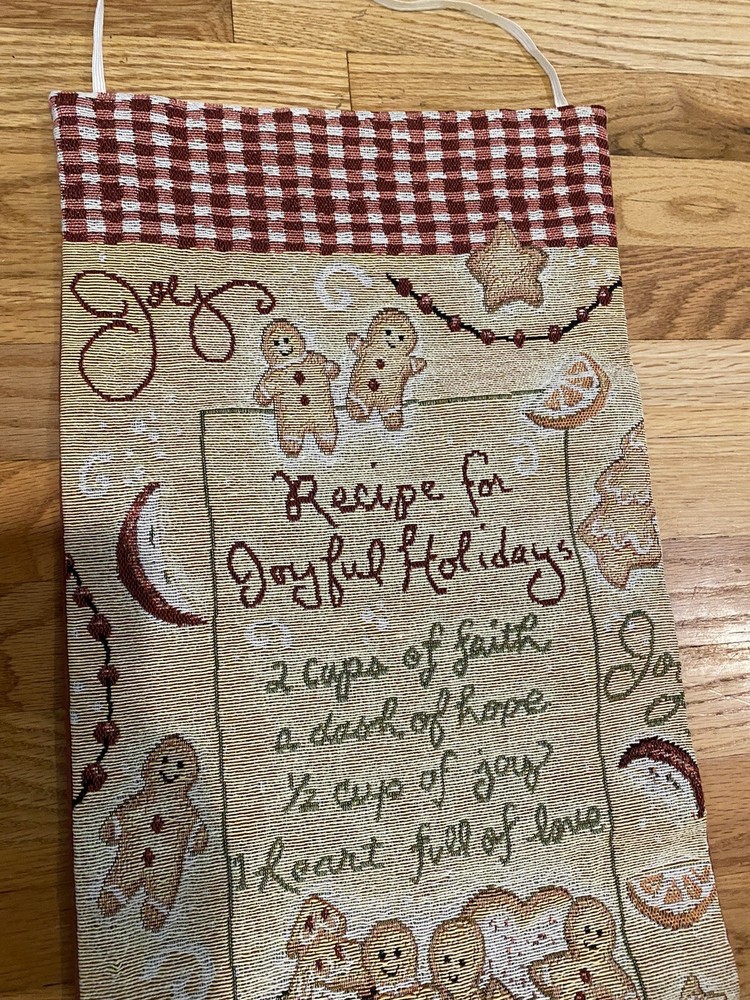 Joy
Recipe for
Joyful Holidays
2 cups of faith
a dash of hope
1/2 cup of joy
1 heart full of love